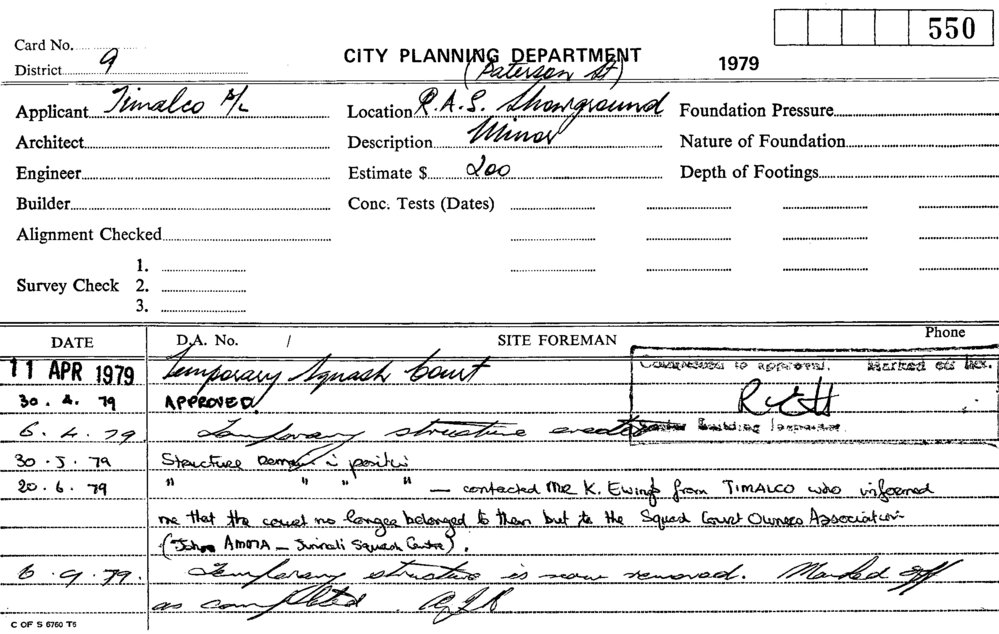 550
Card No.
District 9
CITY PLANNING DEPARTMENT
1979
(Paterson St)
Applicant Timalco P/L
Location R.A.S. Showground
Foundation Pressure
Architect
Description Minor
Nature of Foundation
Engineer
Estimate $ 200
Depth of Footings
Builder
Conc. Tests (Dates)
Alignment Checked
Survey Check 1.
2.
3.
DATE
D.A. No. /
SITE FOREMAN
Phone
11 APR 1979 Temporary Squash Court
Completed to approval. Marked off Dex.
30.4.79 APPROVED
6.4.79 Temporary structure erected
Building Inspector
30.5.79 Structure Remain in position
20.6.79 " " " " — contacted Mr K. Ewings from TIMALCO who informed
me that the court no longer belonged to them but to the Squash Court Owners Association
(John - Squash Centre).
6.9.79. Temporary structure is now removed. Marked off
as completed.
C OF S 6760 T5